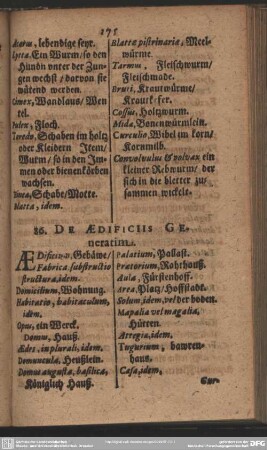 175
lebendige seyt.
Lytta, Ein Wurm/ so den
Hundn vnter der Zun-
gen wechst/ darvon sie
wütend werden.
Cimex, Wandlaus/ Wen
tel.
Pulex, Floch.
Teredo, Schaben im holtz
oder Kleidern Item/
Wurm/ so in den Im-
men oder bienenkörben
wachsen.
Tinea, Schabe/ Motte.
Blatta, idem.
Blattæ pistrinariæ, Meel-
würme.
Tarmus, Fleischwurm/
Fleischmade.
Bruci, Krautwürme/
Krautk-fer.
Cossus, Holtzwurm.
Mida, Bonenwürmlein.
Curculio, Wibel im korn/
Kornmilb.
Convolvulus & volvox ein
kleiner Rebwurm/ der
sich in die bletter zu-
sammen wickelt.
86. DE ÆDIFICIIS GE-
neratim.
ÆDificium, Gebäwe/
Fabrica substructio
structura, idem.
Domicilium, Wohnung.
Habitatio, habitaculum,
idem.
Opus, ein Werck.
Domus, Hauß.
Ædes, in plurali, idem.
Domuncula, Heußlein.
Domus augusta, basilica,
Königlich Hauß.
Palatium, Pallast.
Prætorium, Rahthauß.
Aula, Fürstenhoff.
Area, Platz/ Hoffstadt.
Solum, idem, vel der boden.
Mapalia vel magalia,
Hütten.
Attegia, idem.
Tugurium, bawren-
hauß.
Casa, idem,
Gur-